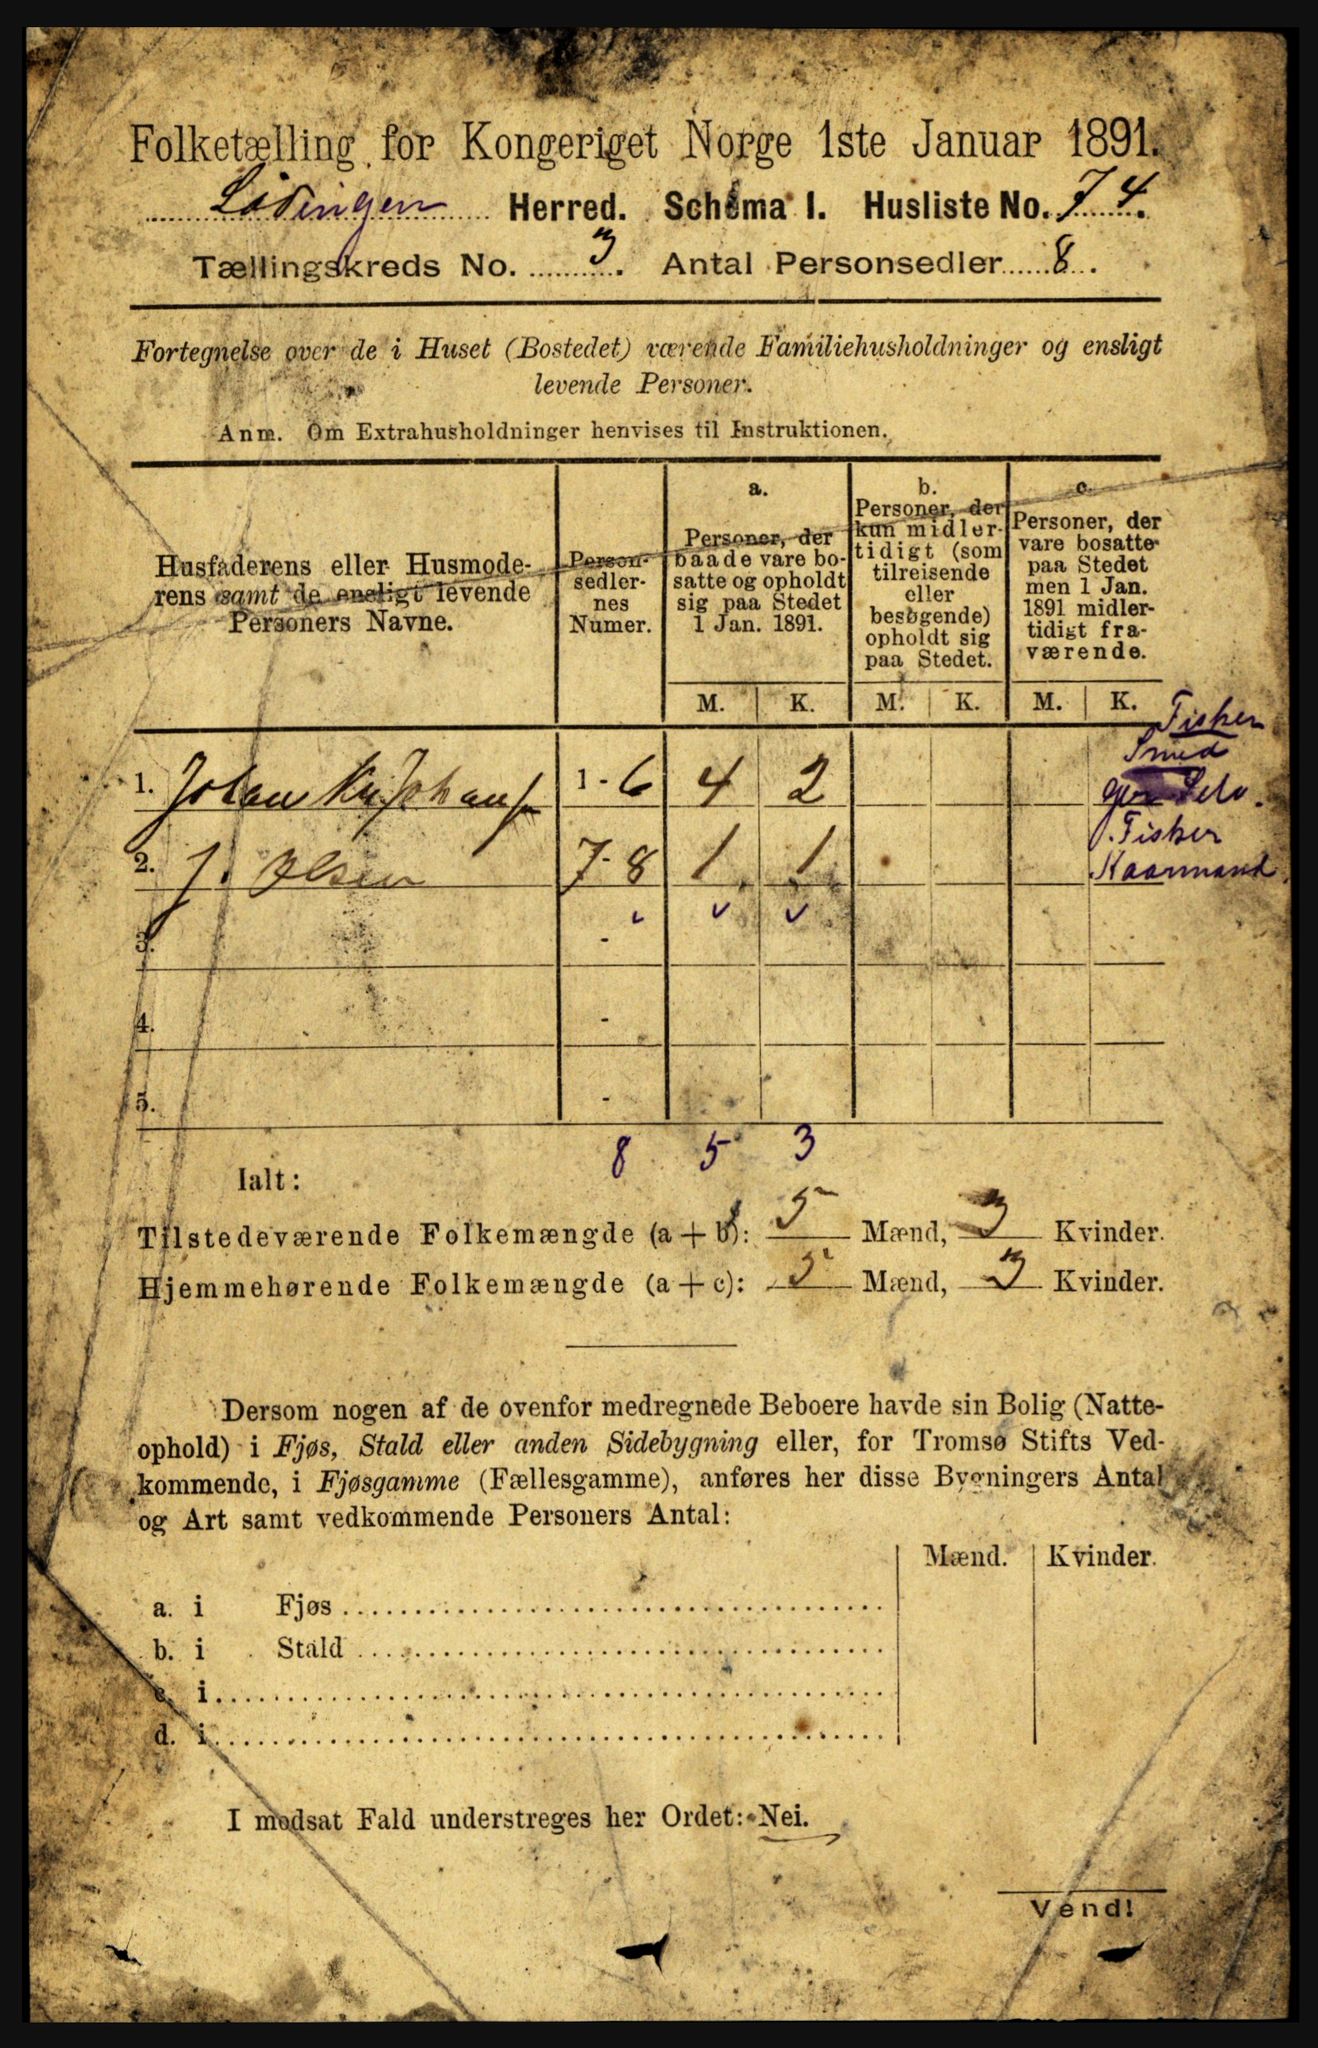 Folketælling for Kongeriget Norge 1ste Januar 1891.
Lødingen Herred. Schema I. Husliste No. 74.
Tællingskreds No. 3. Antal Personsedler 8.
Fortegnelse over de i Huset (Bostedet) værende Familiehusholdninger og ensligt
levende Personer.
Anm. Om Extrahusholdninger henvises til Instruktionen.
Husfaderens eller Husmode-
rens samt de ensligt levende
Personers Navne.
Person-
sedler-
nes
Numer.
a.
Personer, der
baade vare bo-
satte og opholdt
sig paa Stedet
1 Jan. 1891.
b.
Personer, der
kun midler-
tidigt (som
tilreisende
eller
besøgende)
opholdt sig
paa Stedet.
c.
Personer, der
vare bosatte
paa Stedet
men 1 Jan.
1891 midler-
tidigt fra-
værende.
M. K. M. K. M. K.
Fisker
Smed
1. Johan 1 - 6 4 2
Selv.
Fisker
2. J. Olsen 7 - 8 1 1
Kaarmand
3. -
4. -
5. -
8 5 3
Ialt:
Tilstedeværende Folkemængde (a + b): 5 Mænd, 3 Kvinder.
Hjemmehørende Folkemængde (a + c): 5 Mænd, 3 Kvinder.
Dersom nogen af de ovenfor medregnede Beboere havde sin Bolig (Natte-
ophold) i Fjøs, Stald eller anden Sidebygning eller, for Tromsø Stifts Ved-
kommende, i Fjøsgamme (Fællesgamme), anføres her disse Bygningers Antal
og Art samt vedkommende Personers Antal:
Mænd. Kvinder.
a. i Fjøs
b. i Stald
c. i
d. i
I modsat Fald understreges her Ordet: Nei.
Vend!